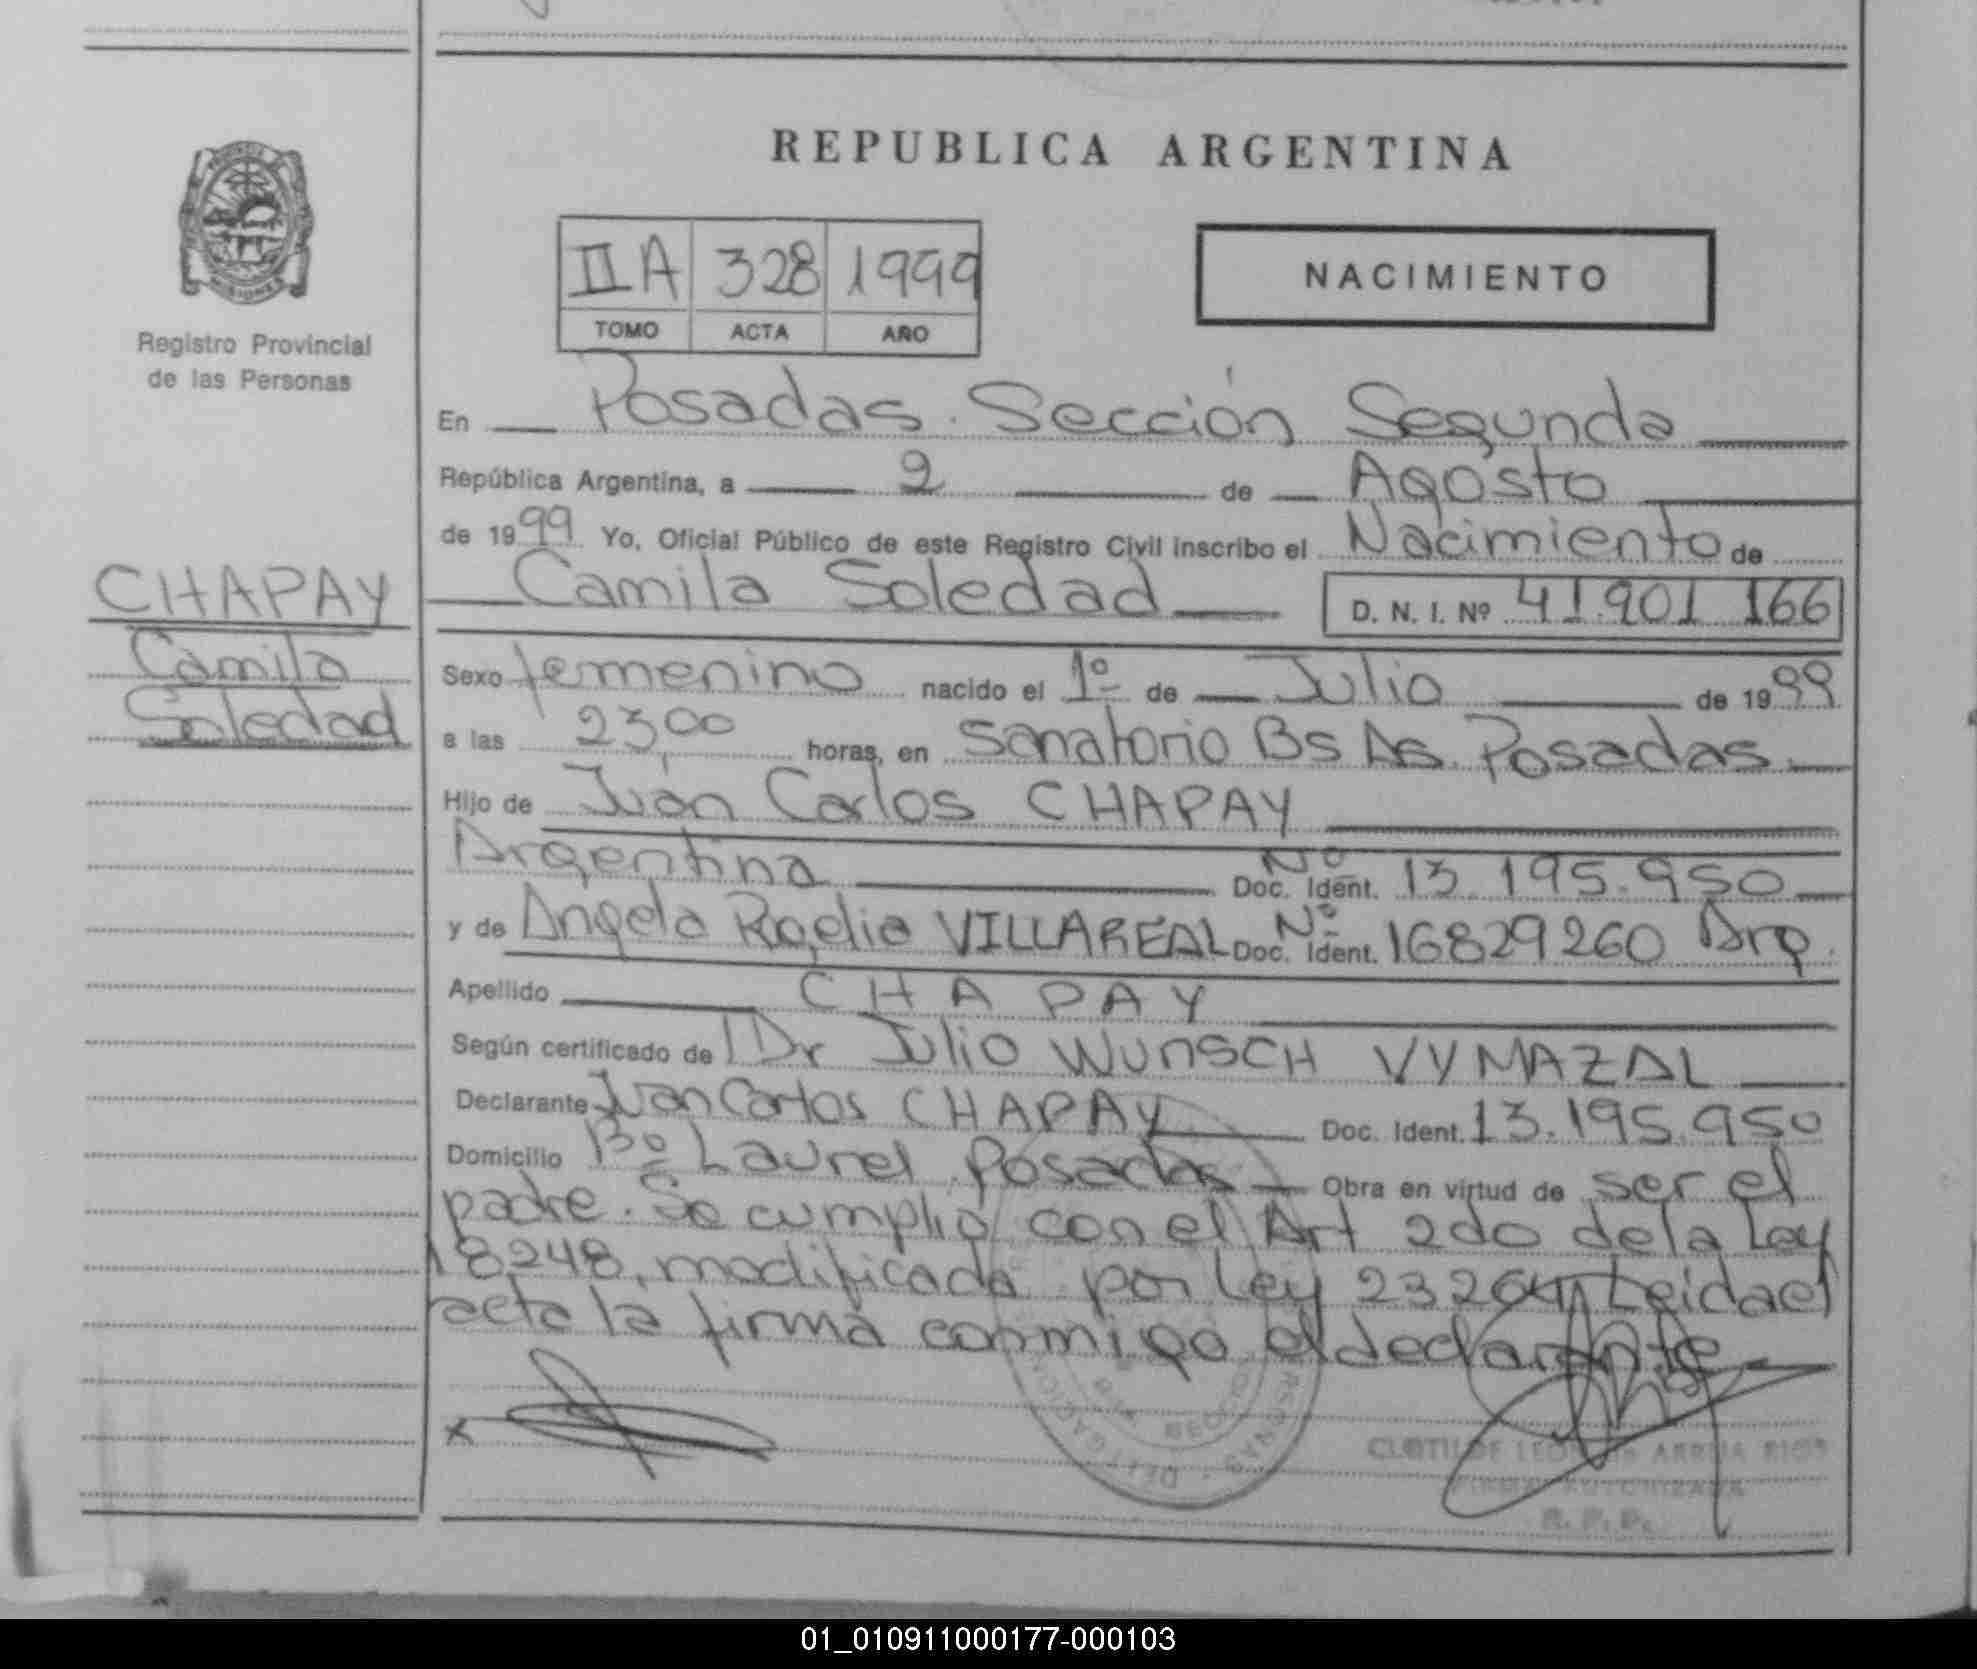 REPUBLICA ARGENTINA
PROVINCIA DE
MISIONES
Registro Provincial
de las Personas
IIA 328 1999
TOMO ACTA AÑO
NACIMIENTO
En Posadas. Sección Segunda
República Argentina, a 2 de Agosto
de 1999 Yo, Oficial Público de este Registro Civil inscribo el Nacimiento de
CHAPAY
Camila
Soledad
Camila Soledad D. N. I. Nº 41.901 166
Sexo femenino nacido el 1º de Julio de 1999
a las 23,00 horas, en Sanatorio Bs As. Posadas
Hijo de Juan Carlos CHAPAY
Argentina Nº Doc. Ident. 13.195.950
y de Angela Rogelia VILLAREAL Nº Doc. Ident. 16829260 Arg.
Apellido CHAPAY
Según certificado de Dr Julio WUNSCH VYMAZAL
Declarante Juan Carlos CHAPAY Doc. Ident. 13.195.950
Domicilio Bº Laurel Posadas Obra en virtud de ser el
padre. Se cumplió con el Art 2do de la Ley
18248, modificada por Ley 23264, Leida el
acta la firma conmigo el declarante
x
DELEGACION
CLOTILDE ARRUA RIOS
FIRMA AUTORIZADA
R. P. P.
01_010911000177-000103